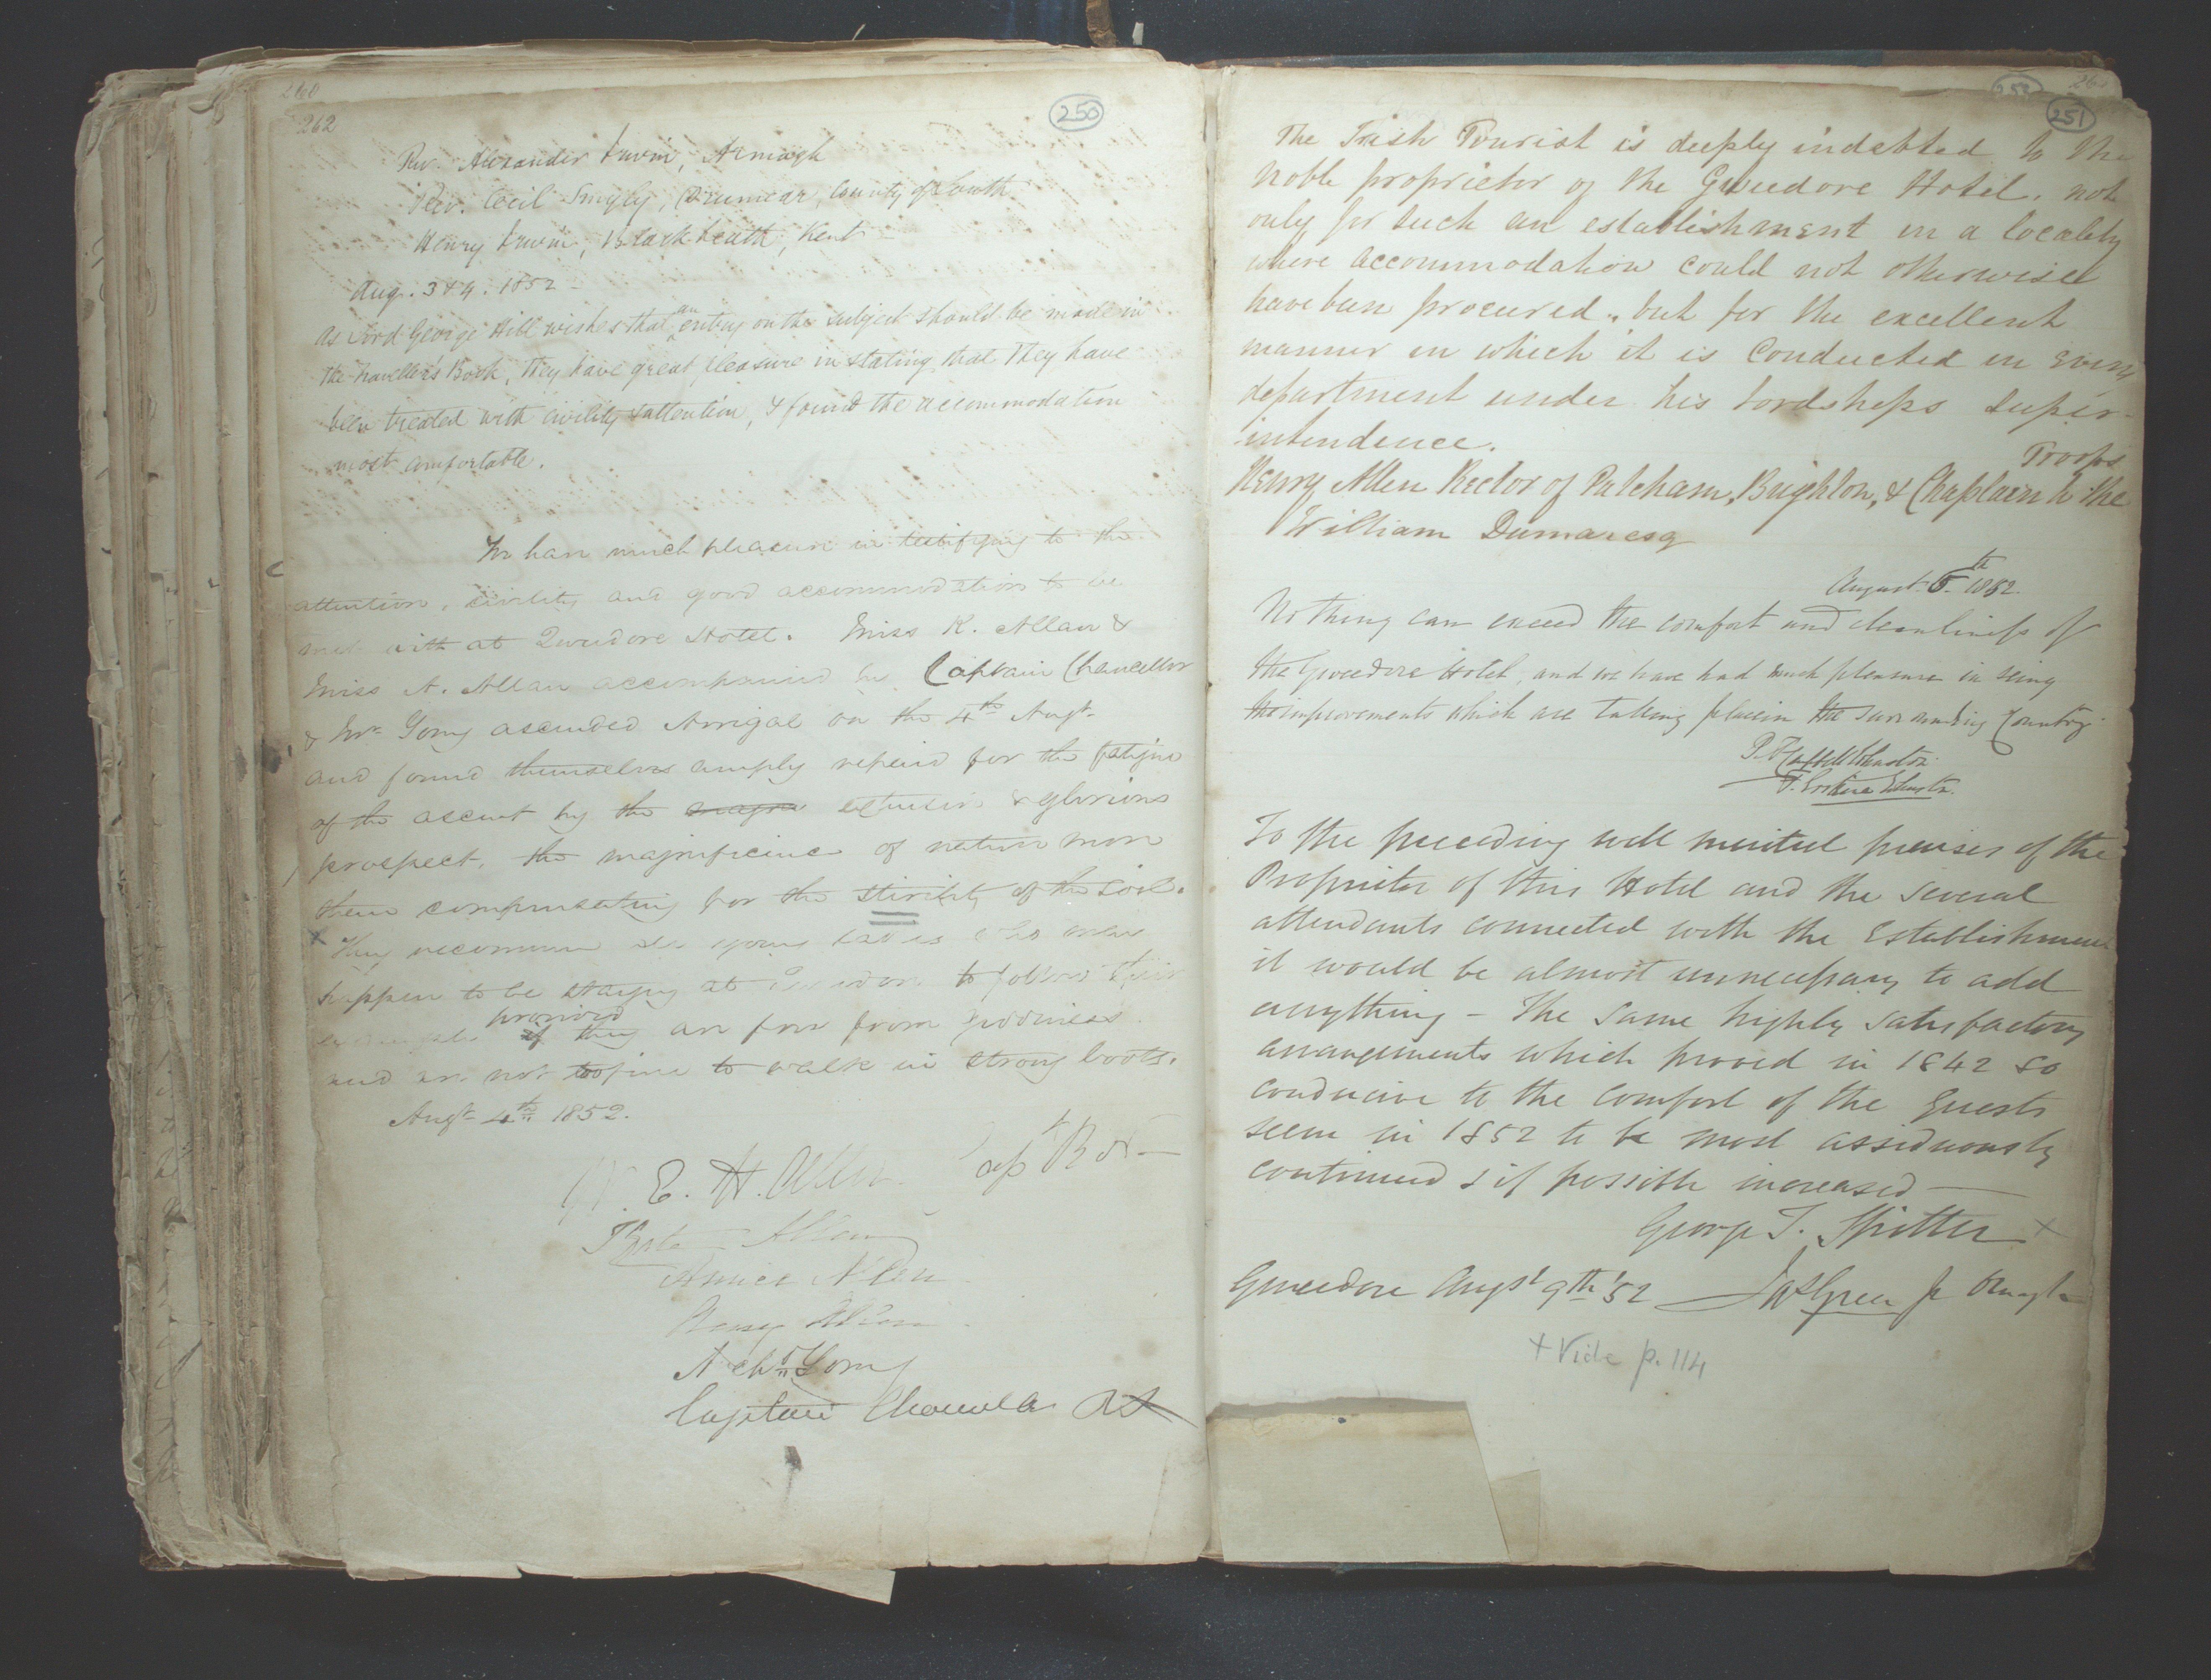 260
262
250
Rev. Alexander Irwin, Armagh
Rev. Cecil Smyly, Drumcar, County of Louth
Henry Irwin, Blackheath, Kent
Aug. 3 & 4. 1852
As Lord George Hill wishes that an entry on the subject should be made in
the traveller's Book, they have great pleasure in stating that they have
been treated with civility & attention, & found the accommodation
most comfortable.
We have much pleasure in testifying to the
attention, civility and good accommodation to be
met with at Gweedore Hotel. Miss K. Allan &
Miss A. Allan accompanied by Captain Chancellor
& Mr. Gorry ascended Arrigal on the 4th Augt.
and found themselves amply repaid for the fatigue
of the ascent by the magni extensive & glorious
prospect, the magnificence of nature more
than compensating for the sterility of the soil.
x They recommend all young ladies who may
happen to be staying at Gweedore to follow their
example provided if they are free from giddiness
and are not too fine to walk in strong boots.
Augt 4th 1852.
E. H. Allen. Capt R N
Allen
Annie Allen
Captain Chancellor RA
253
251
The Irish Tourist is deeply indebted to the
noble proprietor of the Gweedore Hotel, not
only for such an establishment in a locality
where accommodation could not otherwise
have been procured, but for the excellent
manner in which it is conducted in every
department under his Lordships super-
intendence.
Troops
Henry Allen Rector of Patcham, Brighton, & Chaplain to the
William Dumaresq
August 6th 1852.
Nothing can exceed the comfort and cleanliness of
the Gweedore Hotel, and we have had much pleasure in seeing
the improvements which are taking place in the surrounding Country.
P. F. Campbell Johnston.
F. Erskine Johnston.
To the preceding well merited praises of the
Proprietor of this Hotel and the several
attendants connected with the Establishment
it would be almost unnecessary to add
anything - The same highly satisfactory
arrangements which proved in 1842 so
conducive to the comfort of the guests
seem in 1852 to be most assiduously
continued & if possible increased —
George T. +
Gweedore Augst 9th '52 Jas Green
+ Vide p. 114